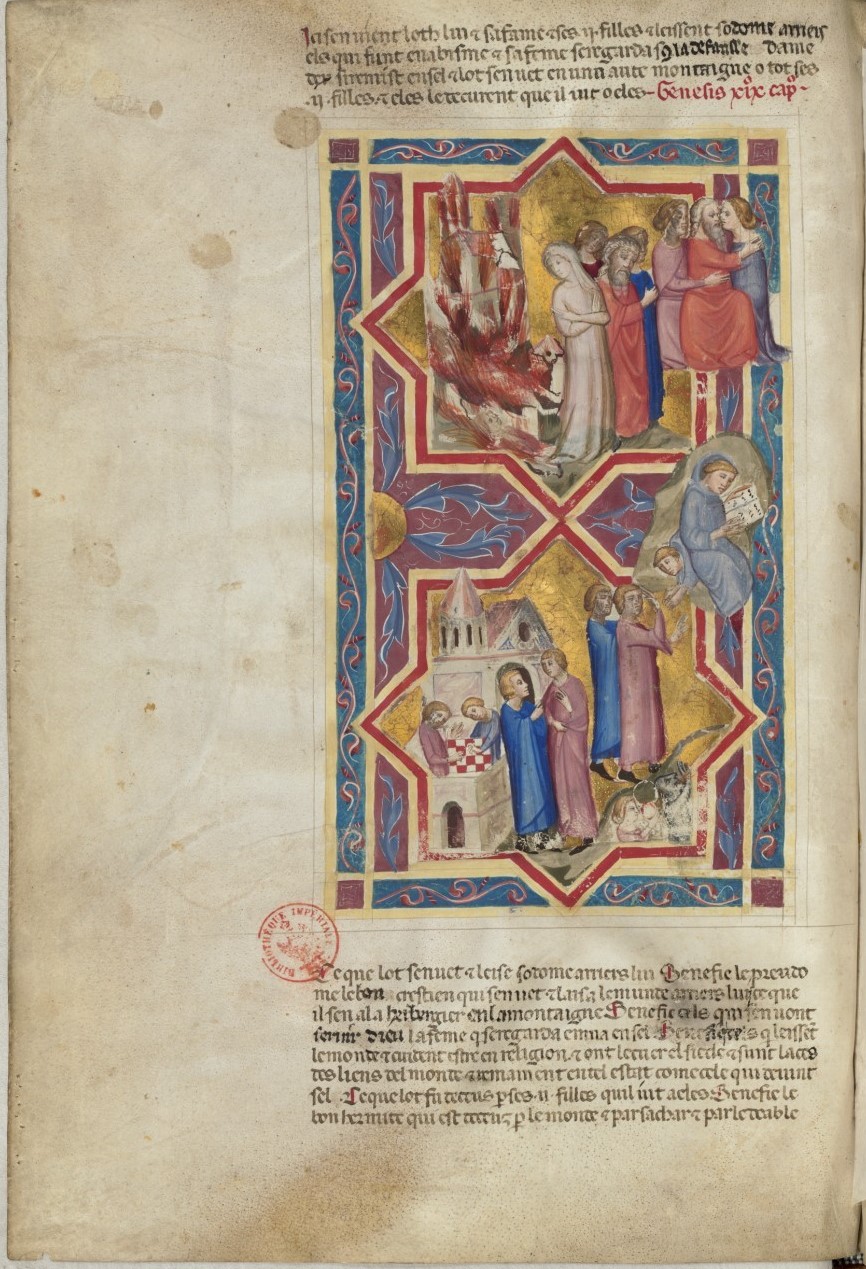 Ici sen vient loth lui & sa fame & ses .ij. filles & leissent sodome arrieis
els qui funt en abisme & sa feme se regarda
se mist en sel & lot sen uet en une aute montaigne o tot ses
.ij. filles & eles le tecurent que il iut o eles Genesis xix cap
Ce que lot sen uet & leise sodome arriers lui Senefie le preudo
me le bon crestien qui sen uet & laisa le munde arriers lui & ce que
il sen ala herbergier en la montaigne Senefie cels qui sen uont
seruir dieu la feme q se regarda en sel Senefie q leissent
le monde & cuident estre en religion & ont le cuer el siecle & sunt laces
des liens del monde & remainent en tel estat come cele qui deuint
sel . Ce que lot fu tecus p ses .ij. filles quil iut a eles Senefie le
bon hermite qui est tecuz p le monde & par sa char & par le deable
BIBLIOTHEQUE IMPERIALE